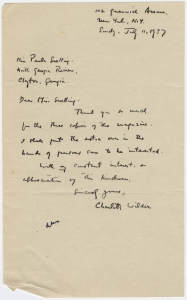 112 Greenwich Avenue,
New York, N.Y.
Sundy - July 11, 1937
Miss Paula Snelling,
North Georgia Review,
Clayton, Georgia
Dear Miss Snelling:
Thank you so much
for the three copies of the magazine.
I shall put the extra ones in the
hands of persons sure to be interested.
With my constant interest, &
appreciation of this kindness,
Sincerely yours,
Charlotte Wilder